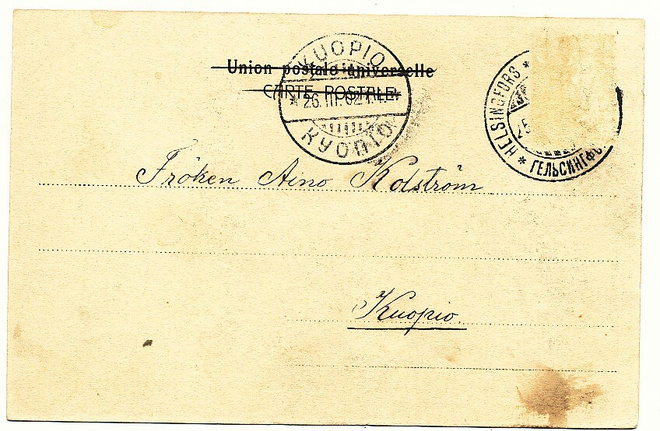 KUOPIO
Union postale universelle
CARTE POSTALE
26.III.02
КУОПІО
HELSINGFORS
25
Fröken Aino Kolström
Kuopio.